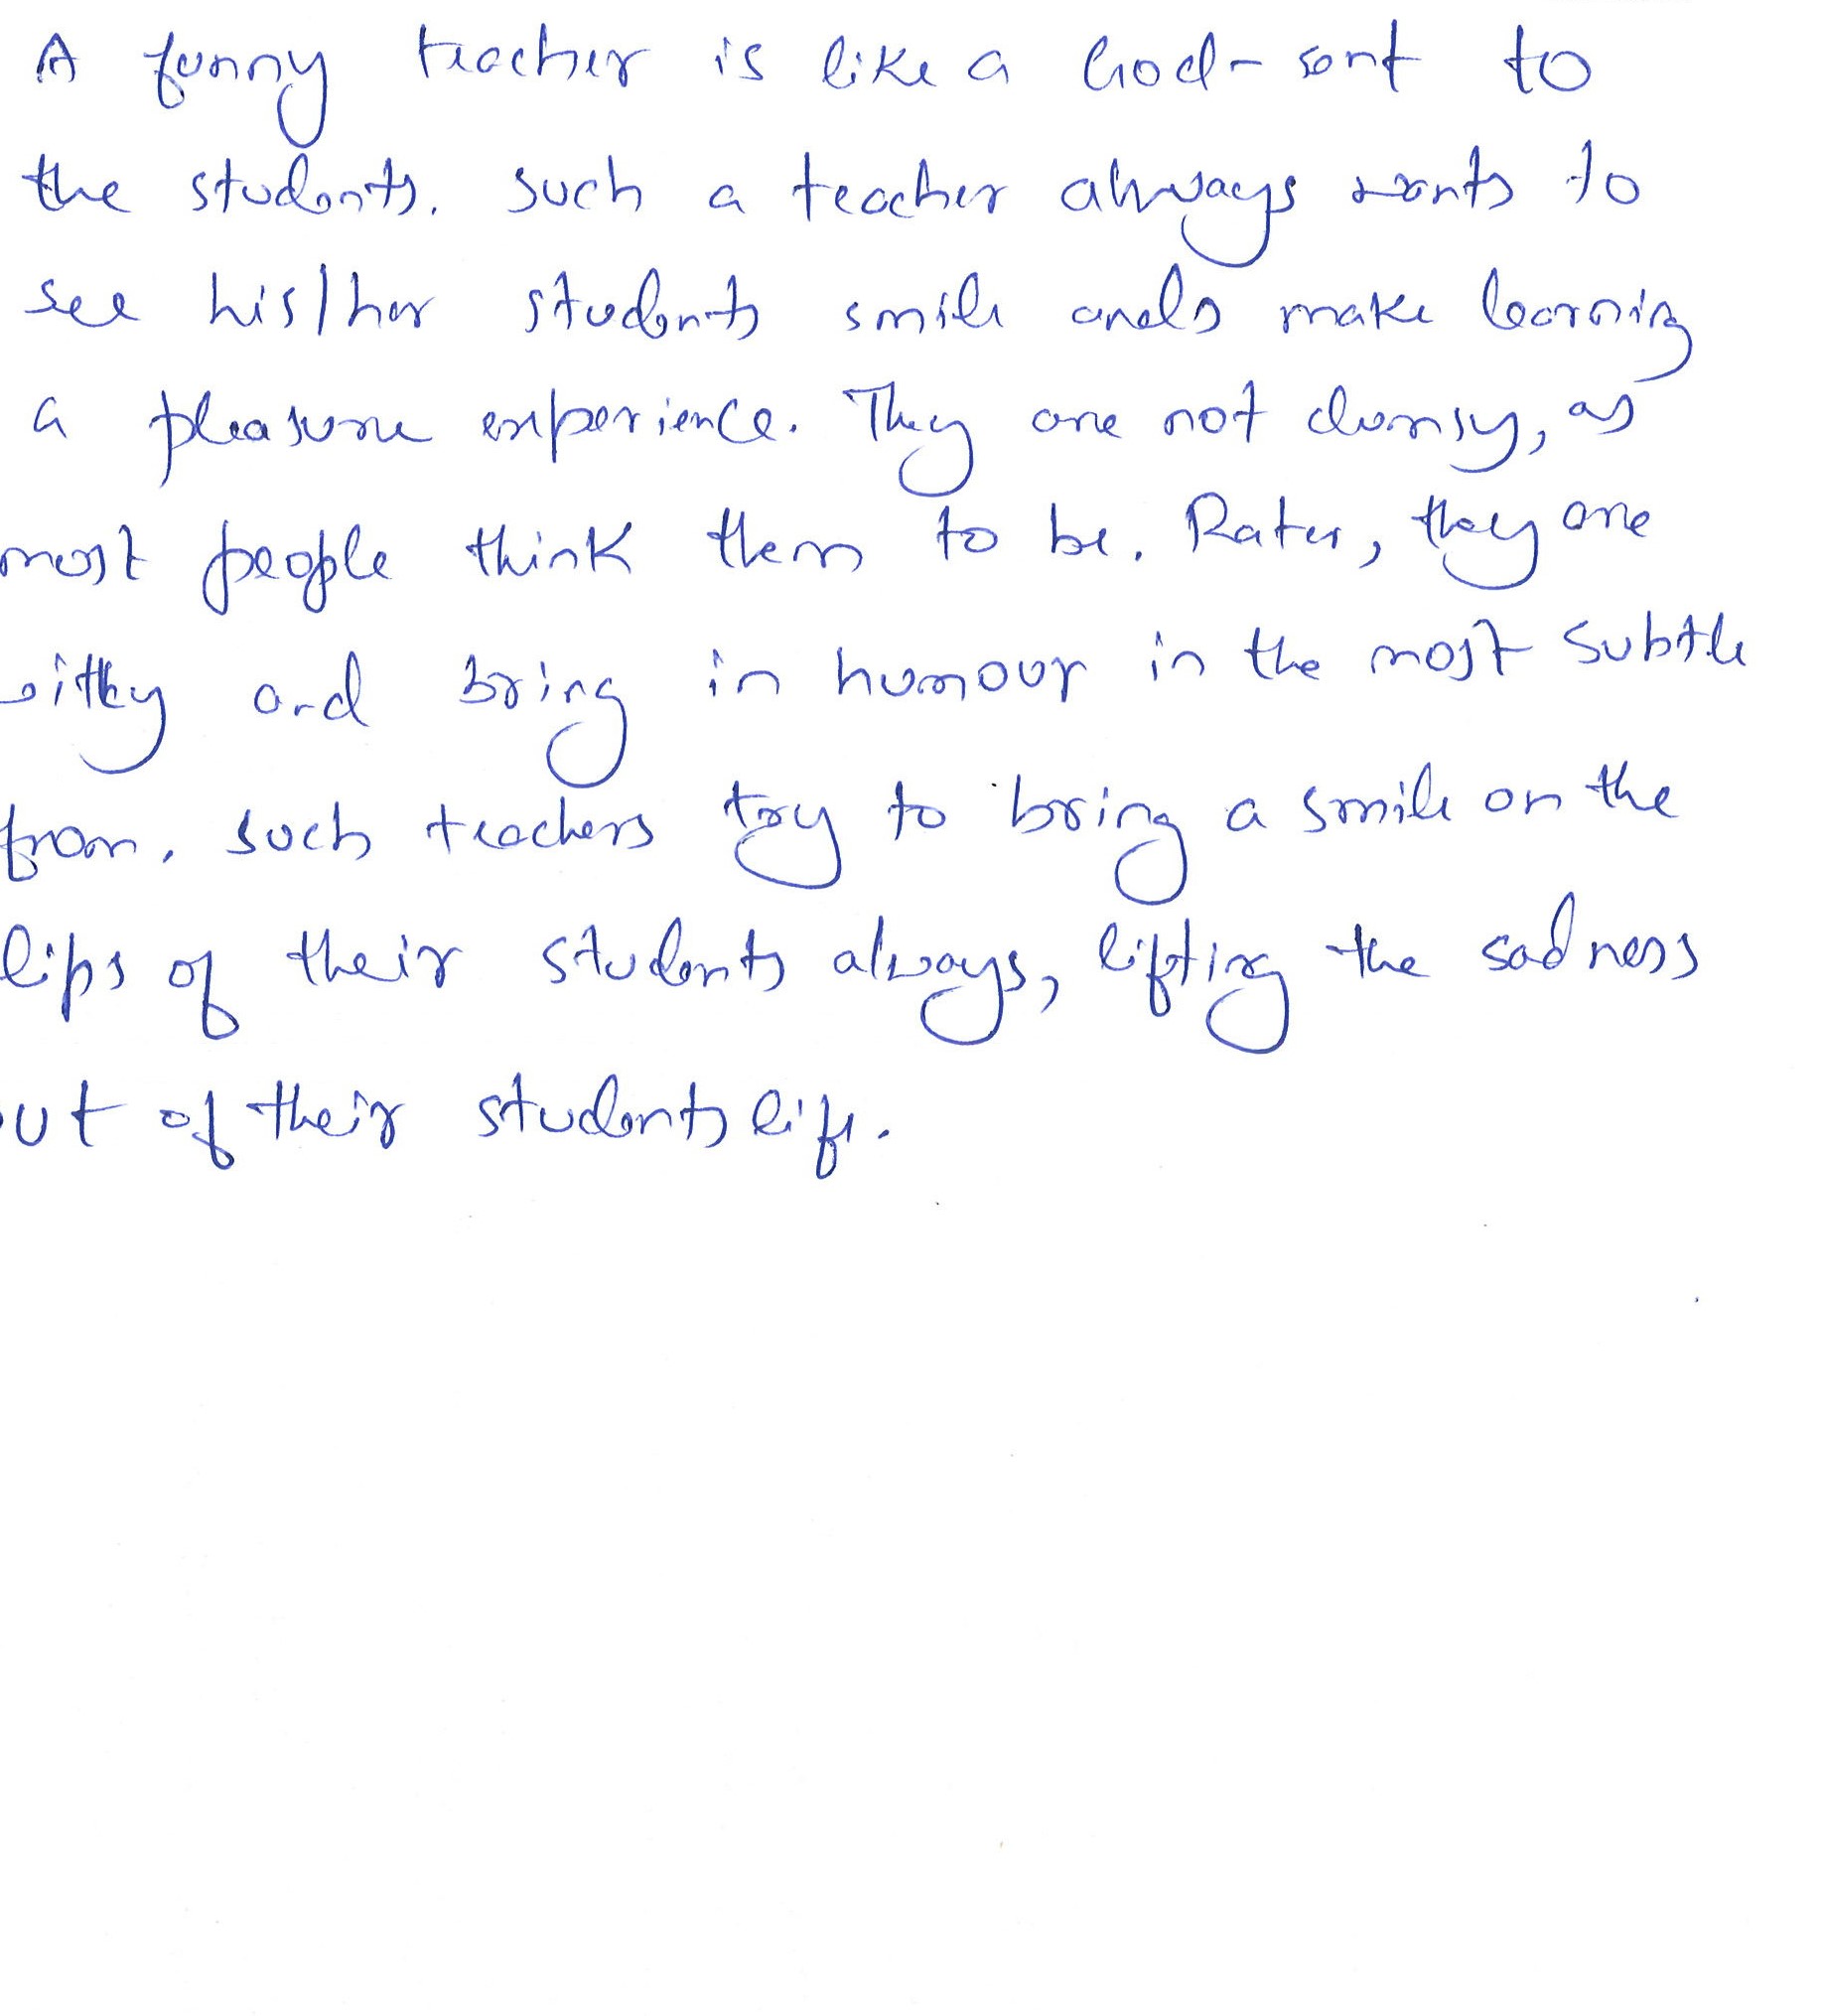 A funny teacher is like a God-sent to
the students. Such a teacher always wants to
see his/her students smile and make learning
a pleasure experience. They are not clumsy, as
most people think them to be. Rater, they are
witty and bring in humour in the most subtle
from. Such teachers try to bring a smile on the
lips of their students always, lifting the sadness
out of their students life.